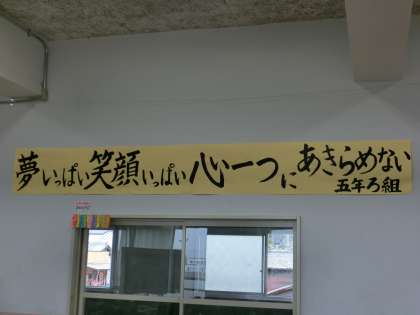 夢いっぱい笑顔いっぱい心一つにあきらめない
五年ろ組